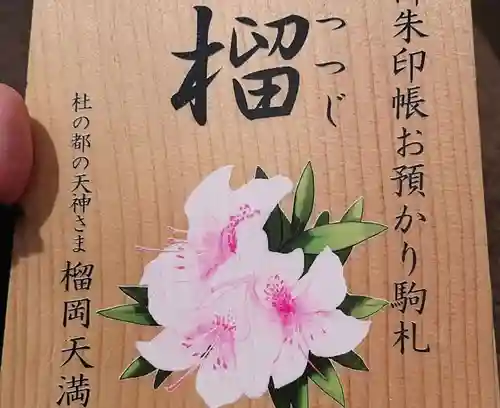 朱印帳お預かり駒札
つつじ
榴
杜の都の天神さま
榴岡天満